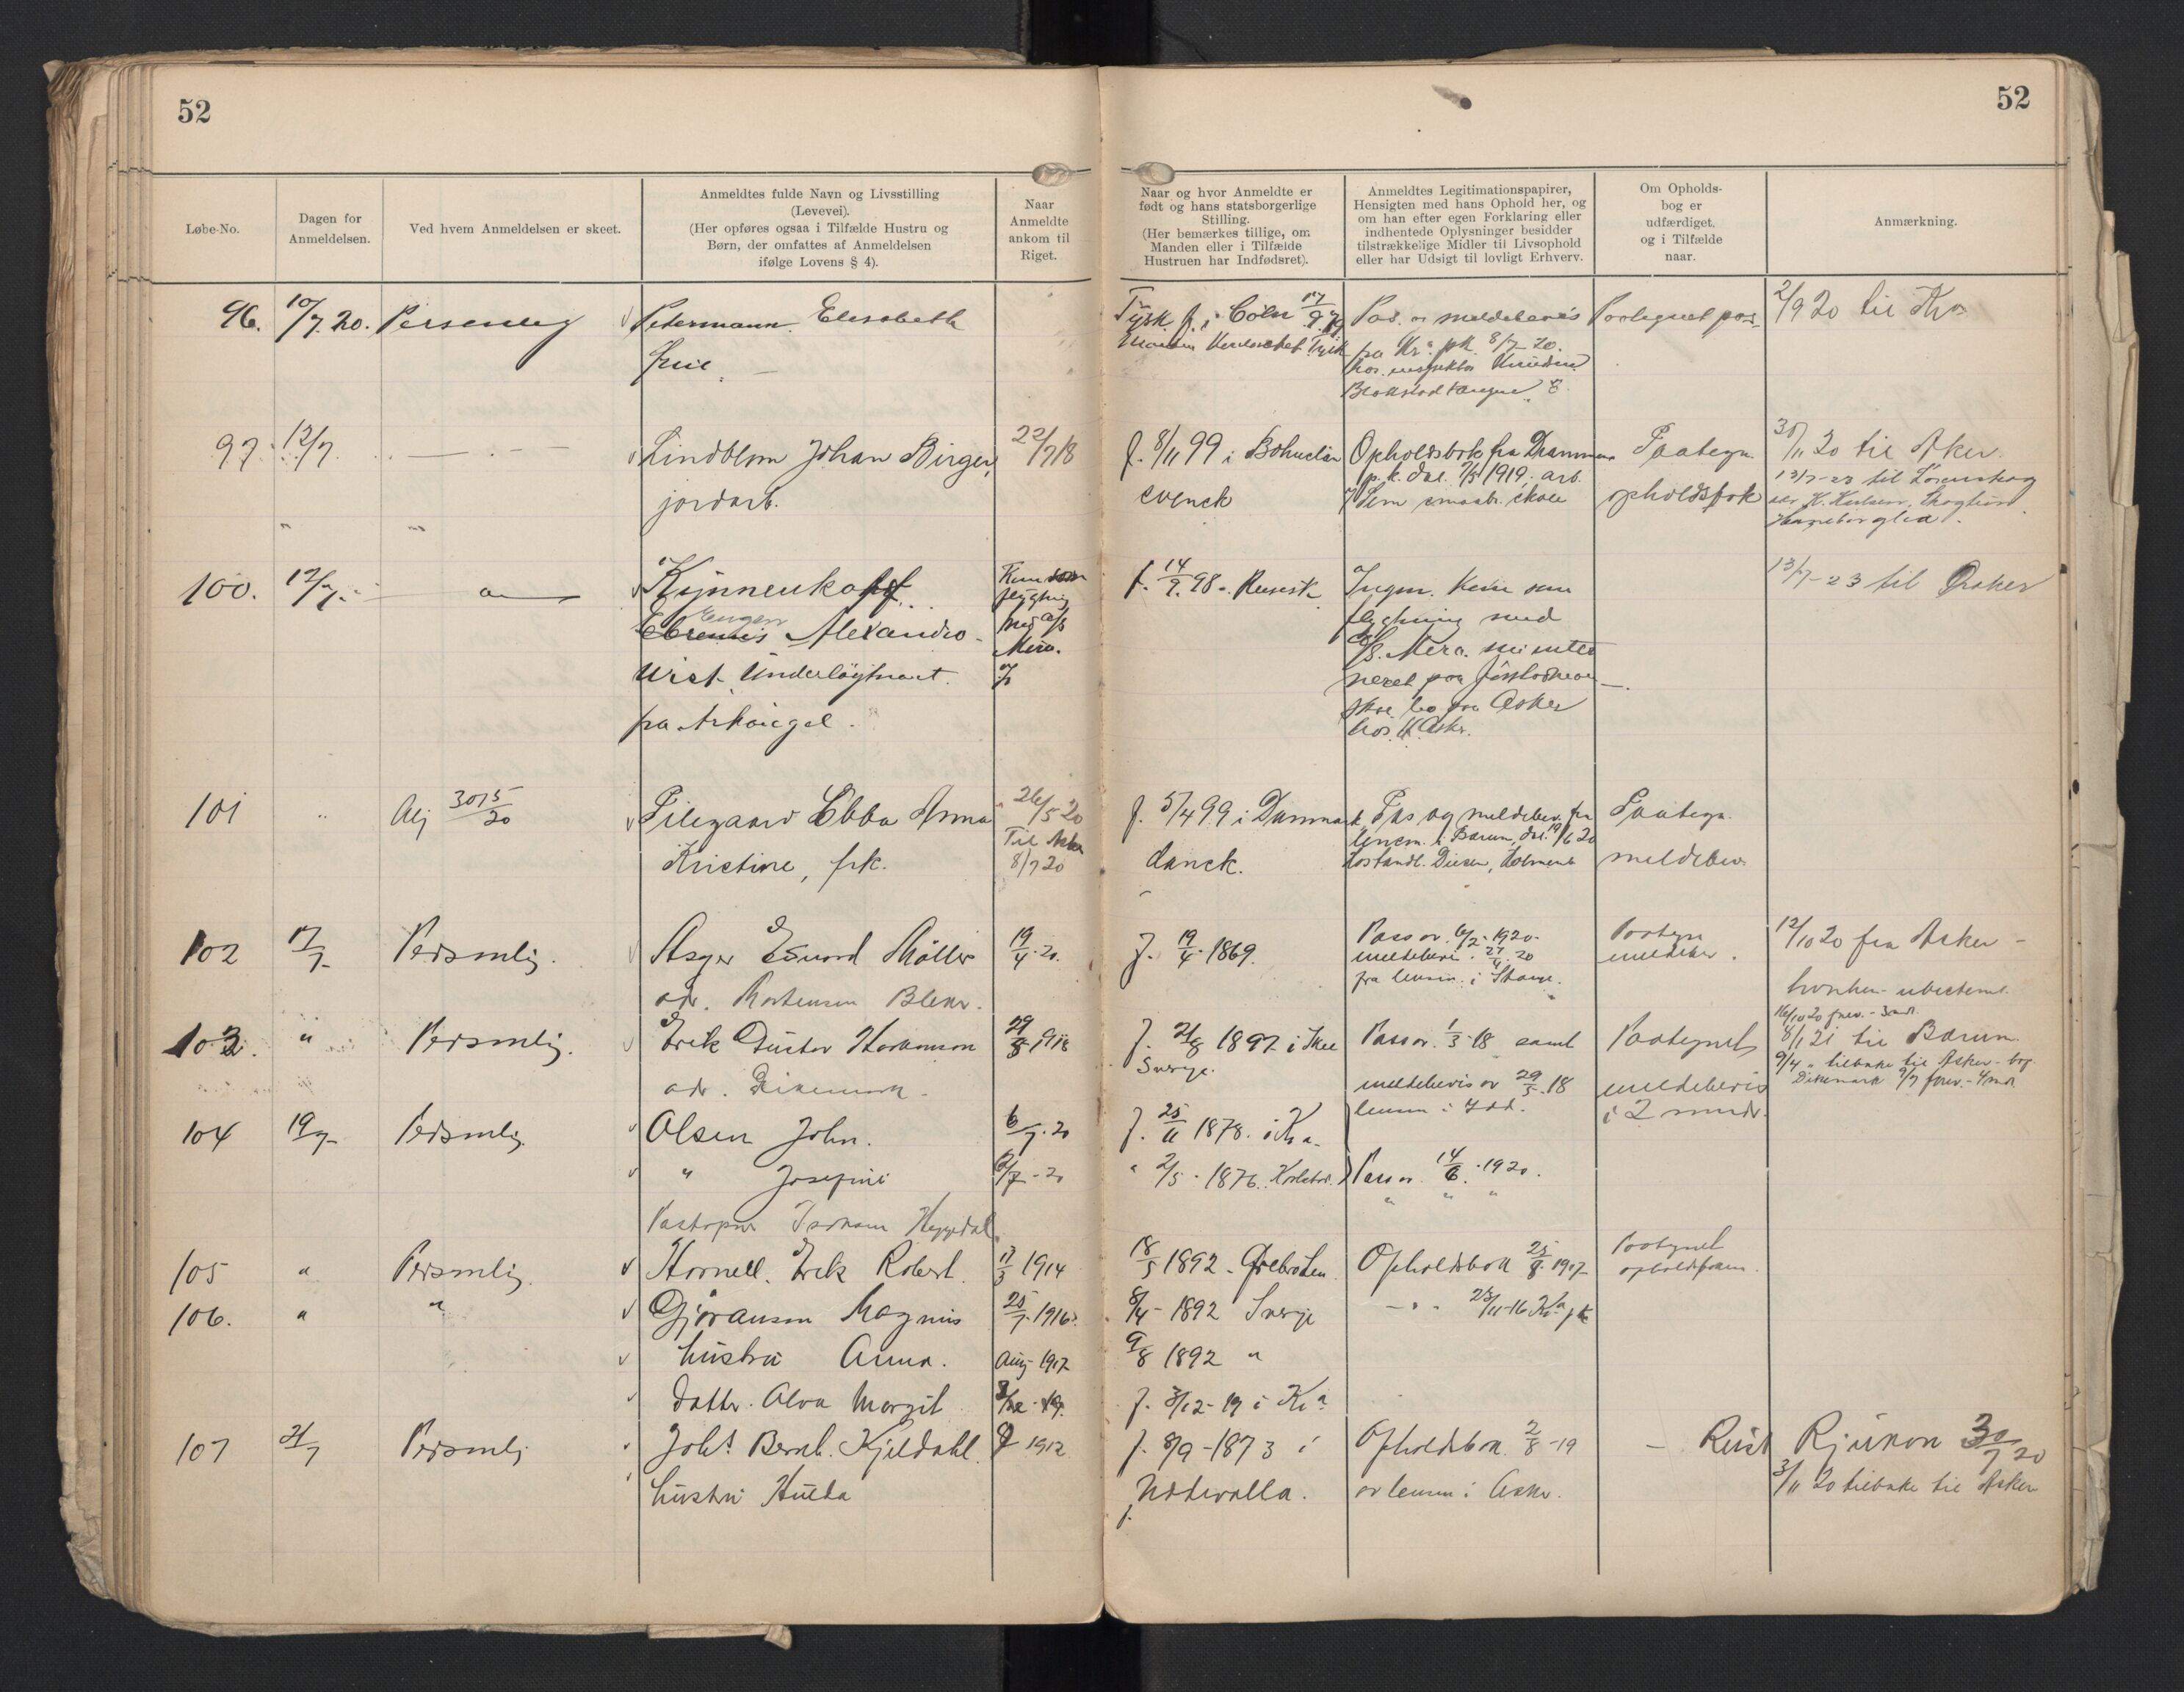 52
52
Løbe-No.
Dagen for
Anmeldelsen.
Ved hvem Anmeldelsen er skeet.
Anmeldtes fulde Navn og Livsstilling
(Levevei).
(Her opføres ogsaa i Tilfælde Hustru og
Børn, der omfattes af Anmeldelsen
ifølge Lovens § 4).
Naar
Anmeldte
ankom til
Riget.
Naar og hvor Anmeldte er
født og hans statsborgerlige
Stilling.
(Her bemærkes tillige, om
Manden eller i Tilfælde
Hustruen har Indfødsret).
Anmeldtes Legitimationspapirer,
Hensigten med hans Ophold her, og
om han efter egen Forklaring eller
indhentede Oplysninger besidder
tilstrækkelige Midler til Livsophold
eller har Udsigt til lovligt Erhverv.
Om Opholds-
bog er
udfærdiget,
og i Tilfælde
naar.
Anmærkning.
96. 10/7.20. Personlig
Petermann. Elisabeth
frue
Tysk f. i Cöln 17/9
Pas og meldebevis
fra Kr.a pk. 8/7-20.
hos inspektør
Paategnet pas
2/9 20 til Kra
97. 12/7.
Lindblom Johan Birger,
jordarb.
22/7 18
f. 8/11 99 i Bohuslän
svensk
Opholdsbok fra Drammen
p.k. dat. 1919. arb.
Sem smaabr. skole
Paategn.
opholdsbok
30/11 20 til Aker.
13/7-23 til Lørenskog
100. 12/7.
Kynnenkoff
Eugen
Alexandro-
vist. Underløjtnant.
fra Arkangel.
Kom som
flygtning
f. 14/9. 98. Russisk
Ingen. Kom som
flygtning med
neret paa Jørstadmoen
skal bo paa Asker
hos Asker.
13/7-23 til Oraker
101 " Alj 3015/20
Pilegaard Ebba Anna
Kristine, frk.
26/5 20
Til Asker
8/7 20
f. 5/4 99 i Danmark
dansk.
Pas og meldebev. fra
lensm. i Bærum, dat. 19/6 20
Paategn.
meldebev.
102 17/7 Personlig.
Asger Møller
adr. Mortensen Blekr.
19/4.20.
f. 19/4.1869.
Pass av 6/2-1920.
meldebevis 27/4.20
fra lensm. i Stange.
Paategn
meldebev.
12/10 20 fra Asker -
hvorhen ubestemt.
103. " Personlig.
Erik Gustav Haakonson
adr. Dikemark
29/5 1918
f. 21/8 1897 i Skee
Sverige.
Pass av. 1/3-18 samt
meldebevis av 29/5.18
lensm i Idd.
Paategnet
meldebevis
i 2 mndr.
16/10 20 forev. - 3 mdr.
8/1 21 til Bærum
9/4 " tilbake til Asker -
Dikemark 9/7 forev. - 4 mdr.
104 19/7- Personlig
Olsen John.
6/7.20
f. 25/11 1878. i Kra.
" Josefine
6/7-20
" 2/5-1876. Karlstad.
Pass av 14/6.1920.
" " "
Heggedal
105 " Personlig.
Hornell. Erik Robert.
17/3 1914
18/5 1892. Ørebro len
Opholdsbok 25/8-1917
Paategnet
106. " "
Gjøransson Magnus
25/7.1916.
8/4-1892 Sverige
23/11-16 Kra pk
hustru Anna.
Aug-1917
9/8 1892 "
datter. Alva Margit
f. 3/12-19 i Kra
107 21/7 Personlig
Johs. Bernh. Kjeldahl
1912
f. 8/9-1873 i
Uddevalla.
Opholdsbok. 2/8-19
av lensm i Asker.
- Reist Rjukan 30/7 20
3/11 20 tilbake til Asker
hustru Hulda
f.